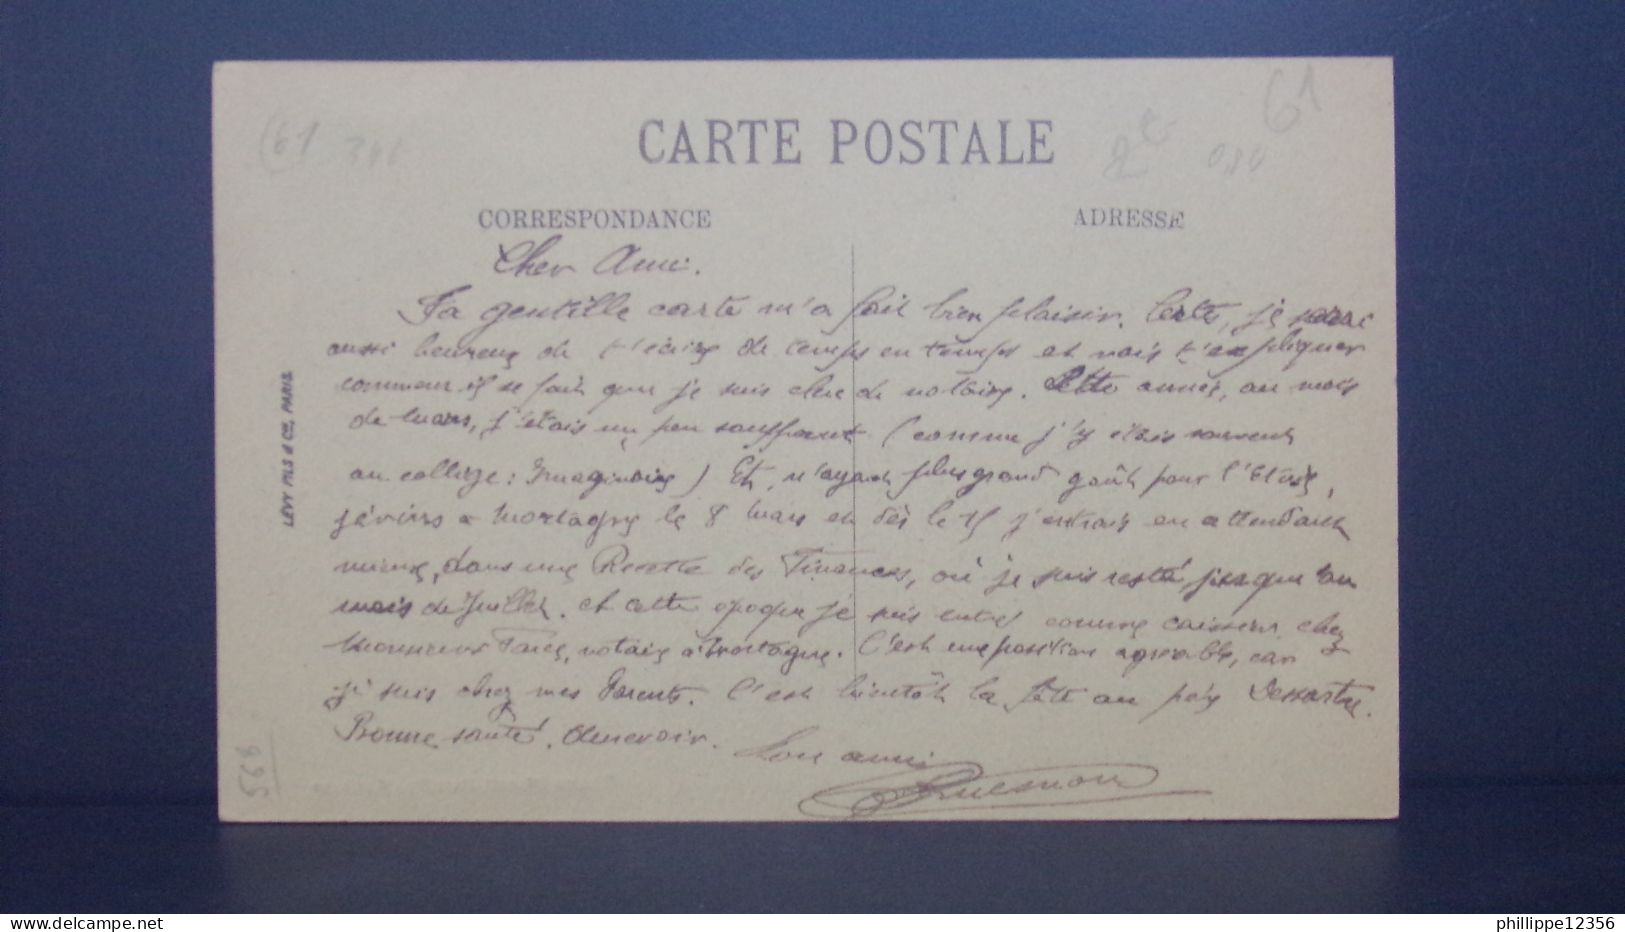 61
61
2€
0,80
CARTE POSTALE
CORRESPONDANCE
ADRESSE
Cher Ami.
Ta gentille carte m'a fait bien plaisir. Certes, je serai
aussi heureux de t'écrire de temps en temps et vais t'expliquer
comment il se fait que je suis clerc de notaire. Cette année, au mois
de mars, j'étais un peu souffrant (comme j'y étais souvent
au collège : Imaginaire) Et, n'ayant plus grand goût pour l'Etude,
je vins à Mortagne le 8 Mars et dès le 15 j'entrais en attendant
mieux, dans une Recette des Finances, où je suis resté jusque au
mois de Juillet. et cette époque je suis entré comme caissier chez
Monsieur notaire à Mortagne. C'est une position agréable, car
je suis chez mes Parents. C'est bientôt la fête au pays
Bonne santé. Aurevoir.
Ton ami
LEVY FILS & CIE, PARIS
598
phillippe12356